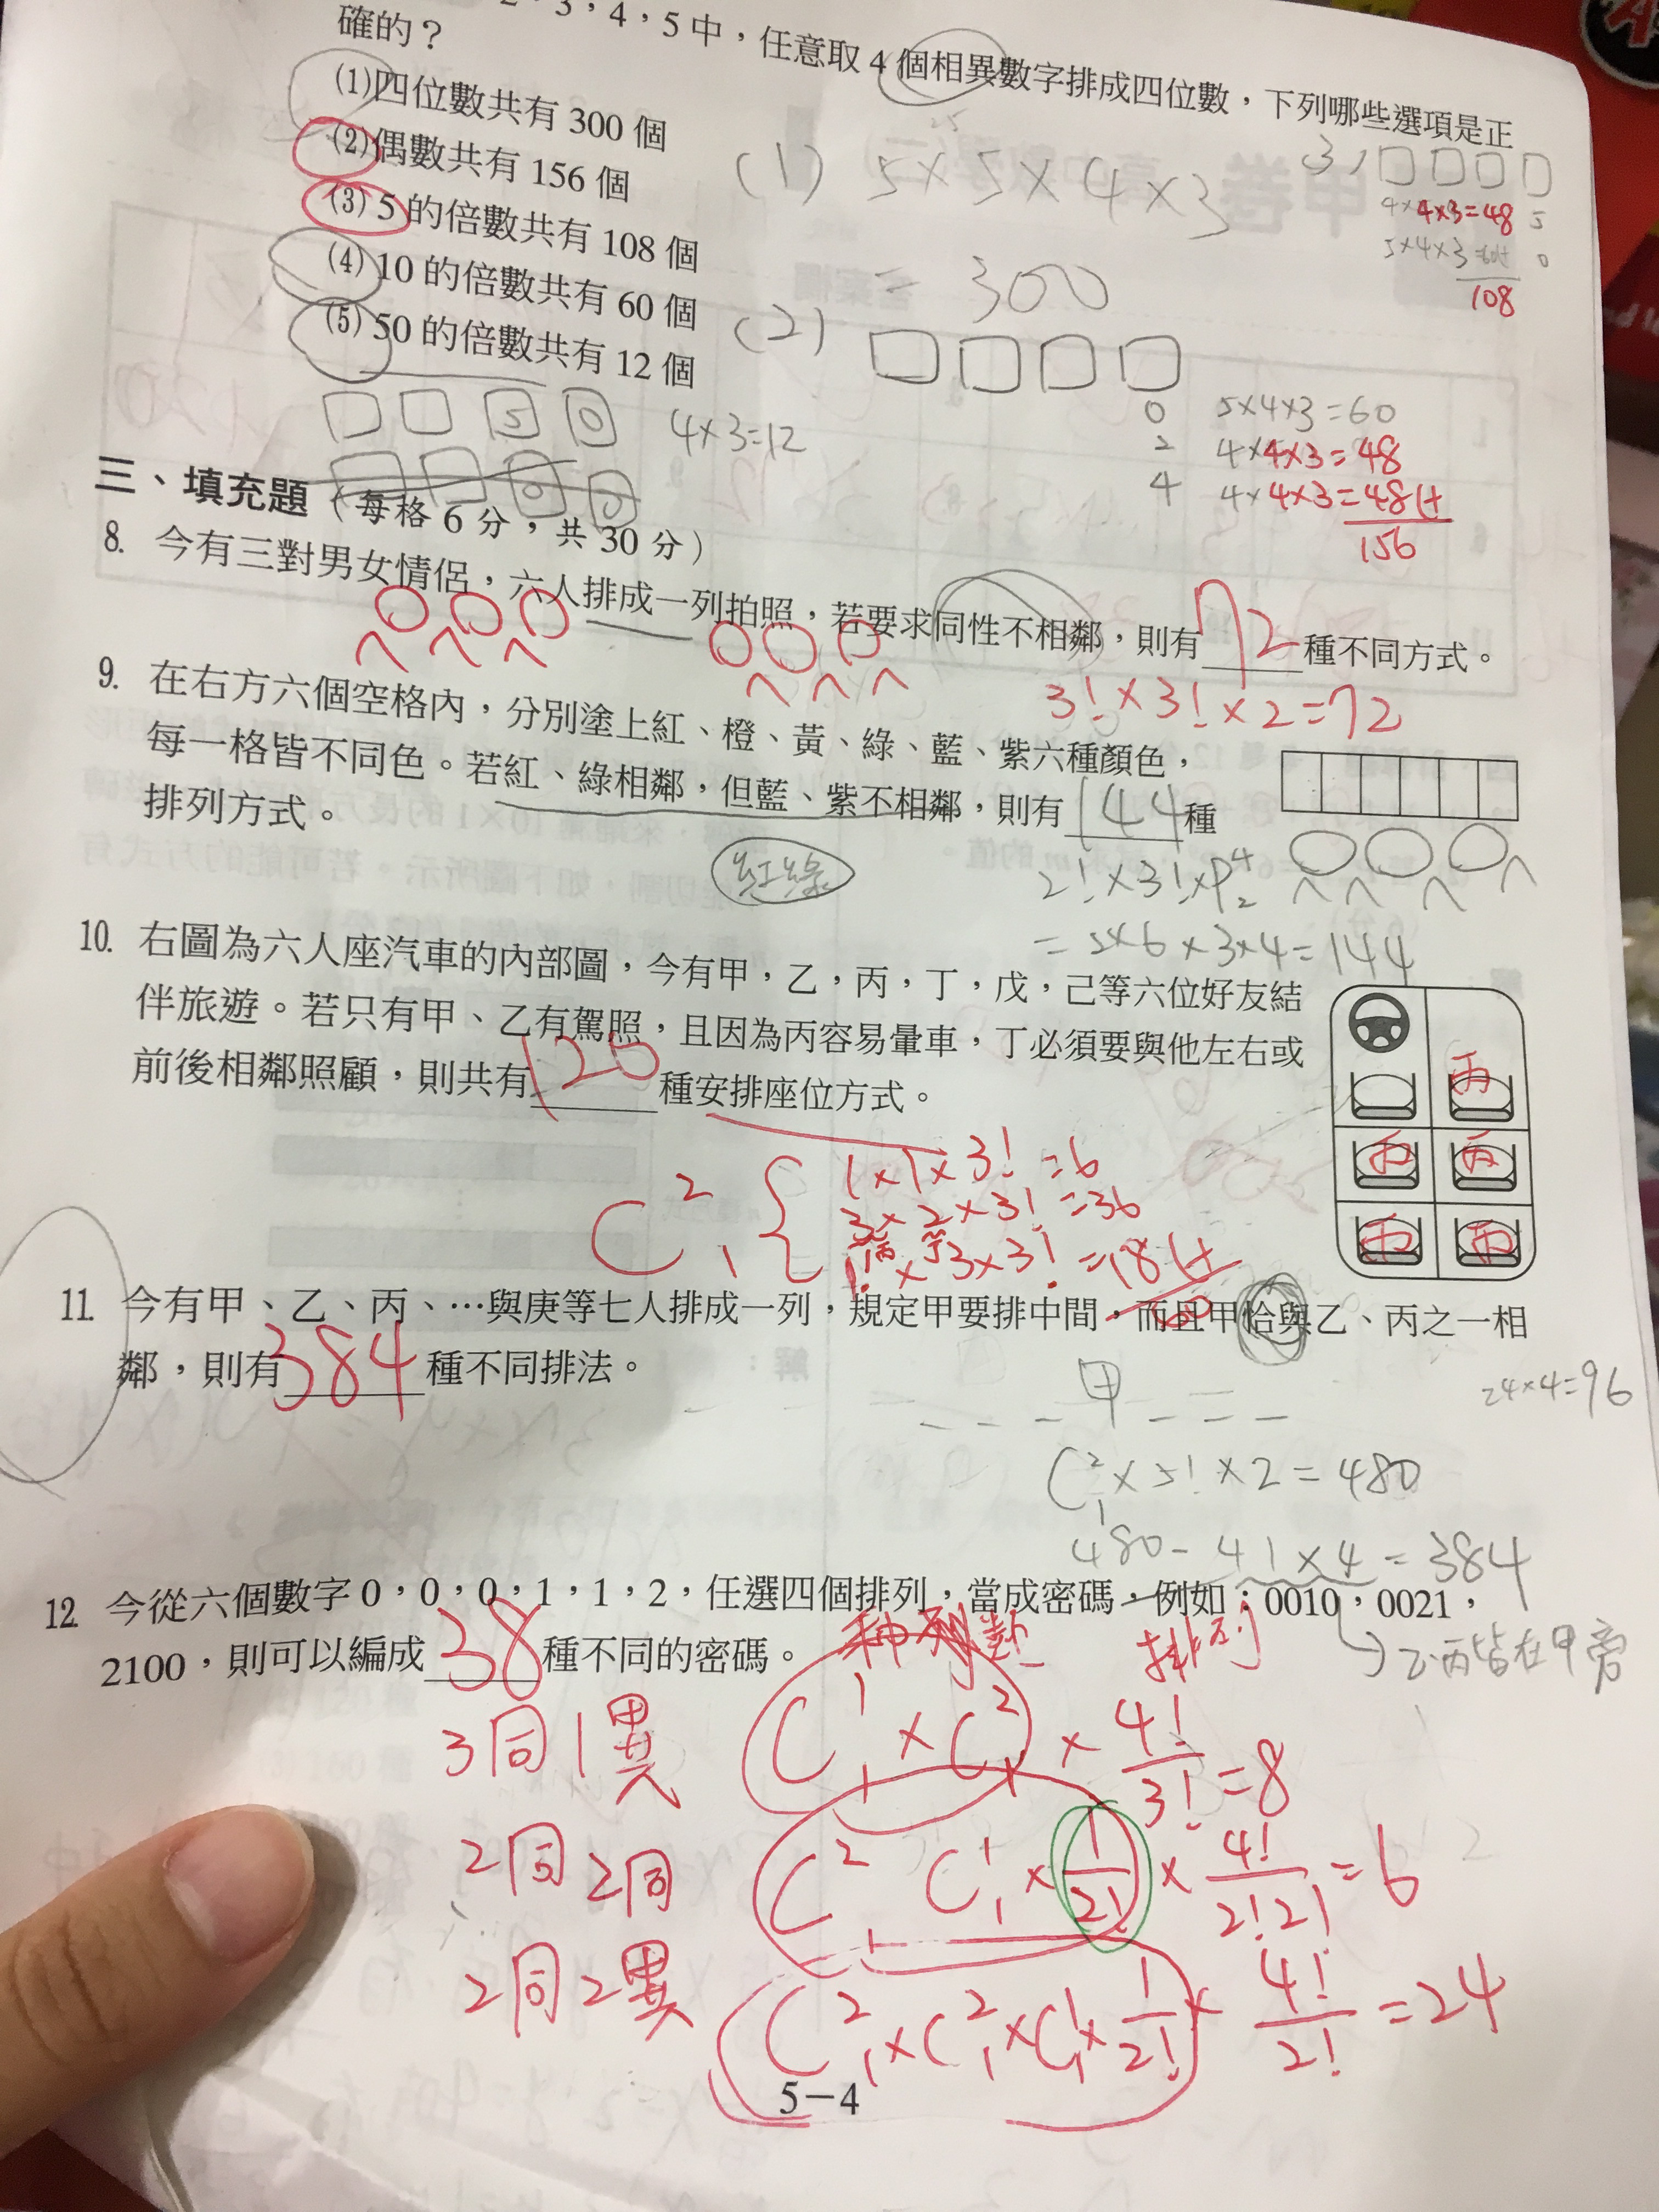 2,3,4,5中,任意取4個相異數字排成四位數,下列哪些選項是正
確的?
(1)四位數共有 300 個
(2)偶數共有 156 個
(3) 5 的倍數共有 108 個
(4) 10 的倍數共有 60 個
(5) 50 的倍數共有 12 個
(1) 5×5×4×3
= 300
(3)
4×4×3=48 5
5×4×3=60+ 0
108
(2)
0 5×4×3=60
2 4×4×3=48
4 4×4×3=48(+
156
5 0
4×3=12
三、填充題(每格 6 分,共 30 分)
8. 今有三對男女情侶,六人排成一列拍照,若要求同性不相鄰,則有72種不同方式。
3!×3!×2=72
9. 在右方六個空格內,分別塗上紅、橙、黃、綠、藍、紫六種顏色,
每一格皆不同色。若紅、綠相鄰,但藍、紫不相鄰,則有144種
排列方式。
紅綠
2!×3!×P⁴₂
=2×6×3×4=144
10. 右圖為六人座汽車的內部圖,今有甲,乙,丙,丁,戊,己等六位好友結
伴旅遊。若只有甲、乙有駕照,且因為丙容易暈車,丁必須要與他左右或
前後相鄰照顧,則共有120種安排座位方式。
丙
丙 丙
丙 丙
C²₁ { 1×1×3! =6
3×2×3! =36
丙 丁
1!×3×3! =18(+
60
11. 今有甲、乙、丙、…與庚等七人排成一列,規定甲要排中間,而且甲恰與乙、丙之一相
鄰,則有384種不同排法。
甲
24×4=96
C²₁×5!×2=480
480-4!×4=384
乙丙皆在甲旁
12. 今從六個數字 0,0,0,1,1,2,任選四個排列,當成密碼,例如:0010,0021,
2100,則可以編成38種不同的密碼。
排列
3同1異 C¹₁×C²₁×4!/3!=8
2同2同 C²₁ C¹₁×1/2!×4!/2!2!=6
2同2異 C²₁×C²₁×C¹₁×1/2!×4!/2!=24
5-4